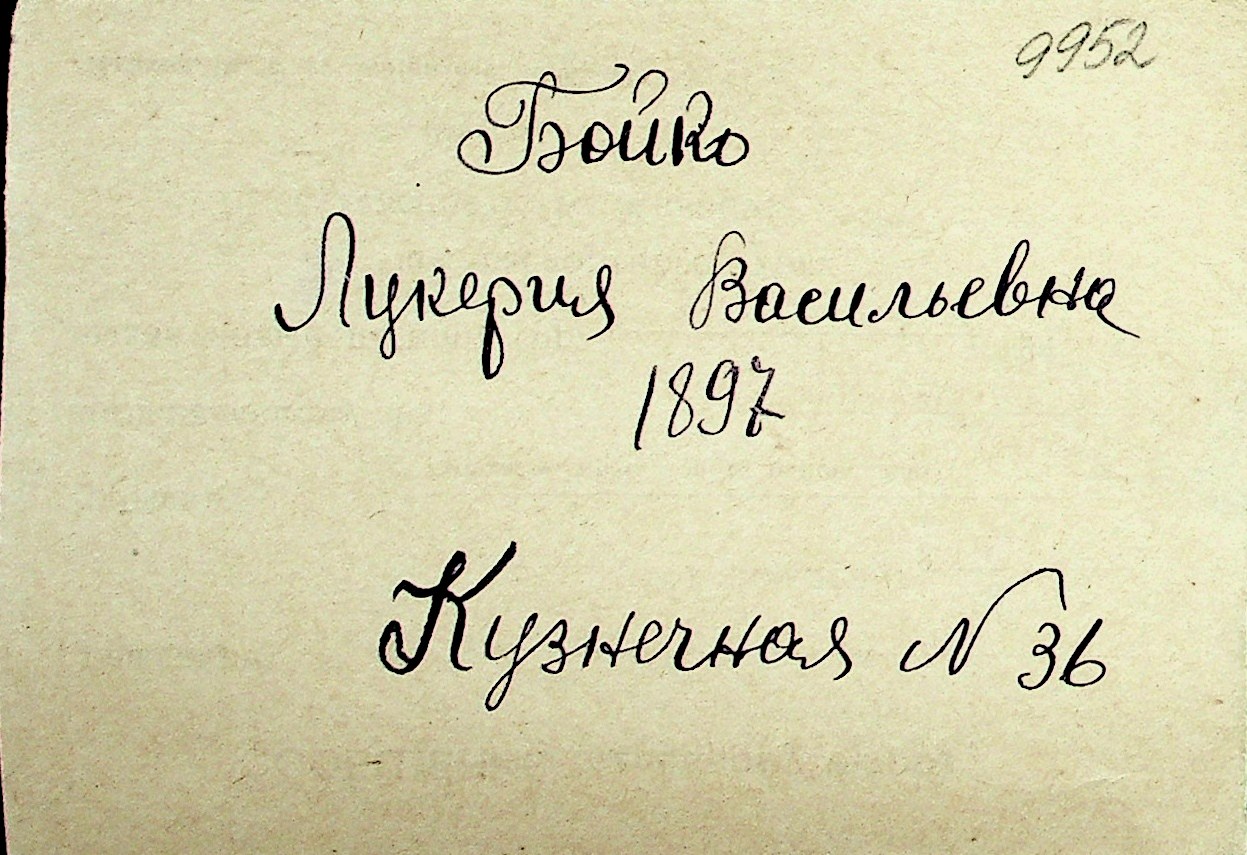 9952
Бойко
Лукерия Васильевна
1897
Кузнечная N 36